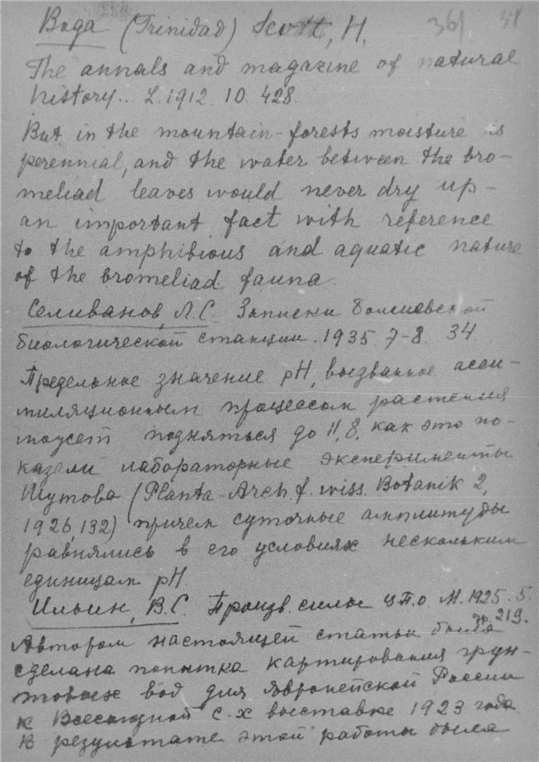 Вода (Trinidad) Scott, H. 361
The annals and magazine of natural
history.. L. 1912. 10. 428.
But in the mountain-forests moisture is
perennial, and the water between the bro-
meliad leaves would never dry up -
an important fact with reference
to the amphibious and aquatic nature
of the bromeliad fauna.
Селиванов, Л.С. Записки Болшевской
биологической станции. 1935. 7-8. 34
Предельное значение pH, вызванное асси-
миляционным процессом растения
может подняться до 11,8, как это по-
казали лабораторные эксперименты
Шутова (Planta-Arch f. wiss. Botanik 2,
1926, 132) причем суточные амплитуды
равнялись в его условиях нескольким
единицам pH.
Ильин, В.С. Произв. силы Ц.П.О. М. 1925. 5.
219.
Автором настоящей статьи была
сделана попытка картирования грун-
товых вод для Европейской России
к Всесоюзной с.х выставке 1923 года
В результате этой работы была